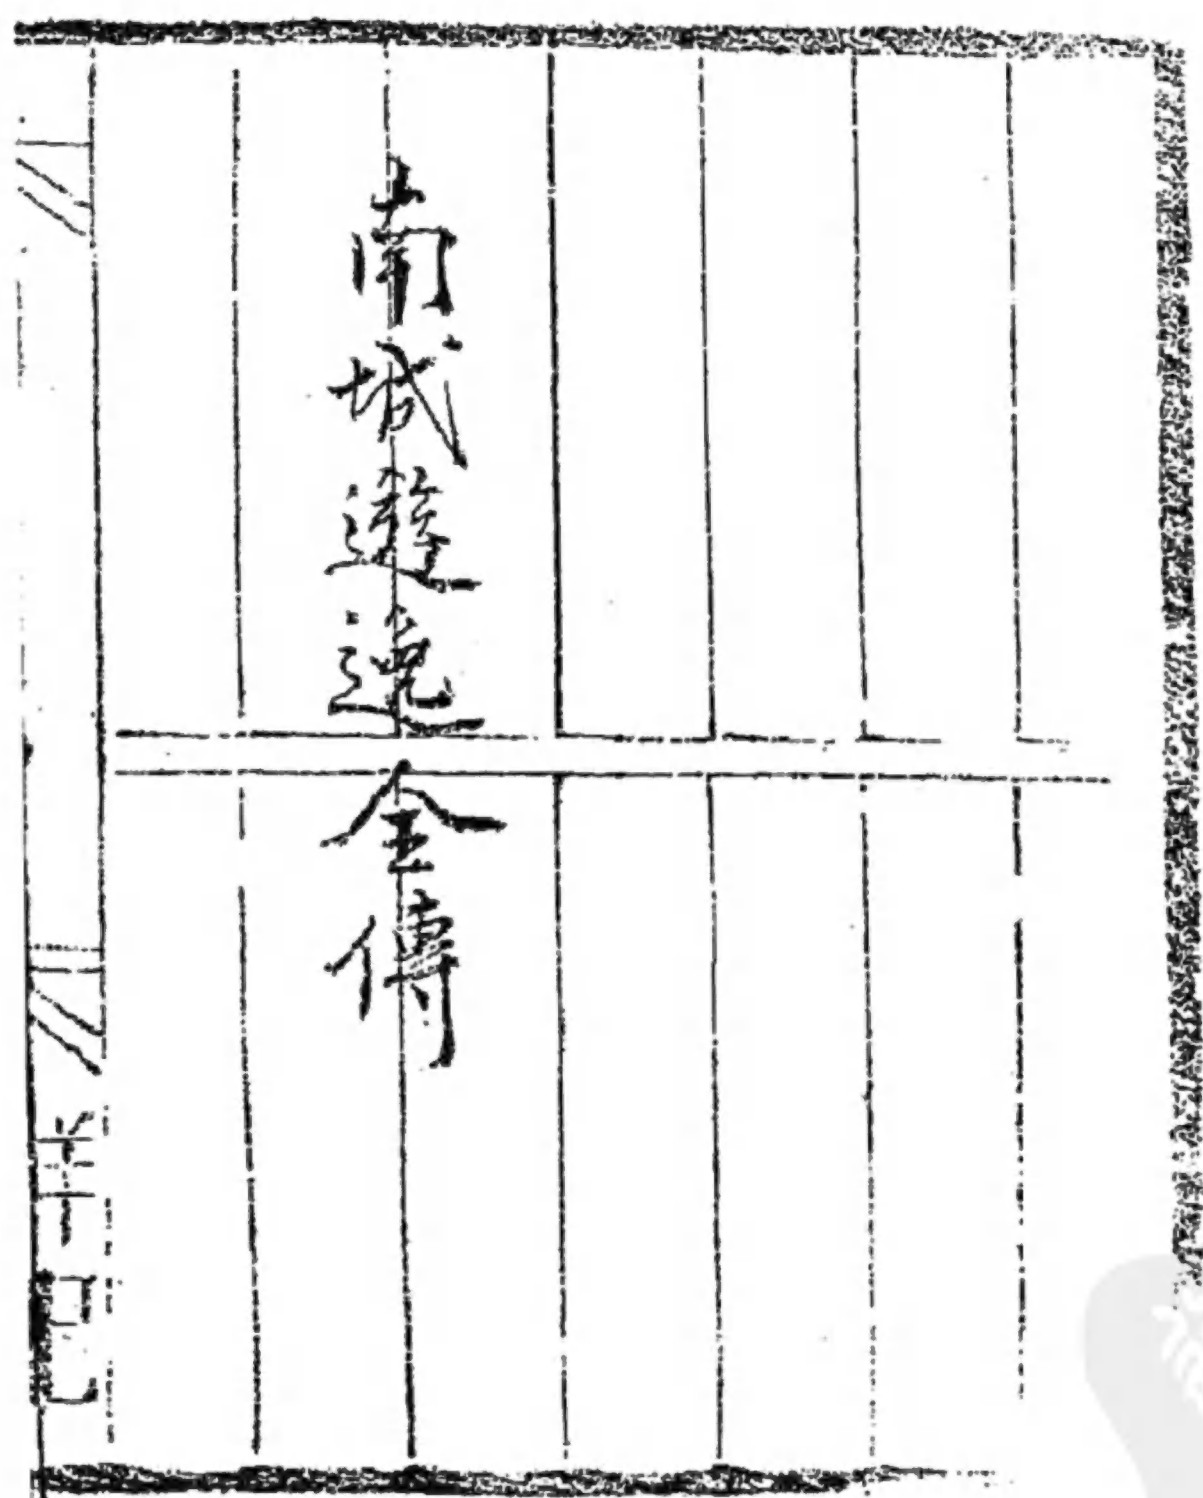 南城遊逸全傳